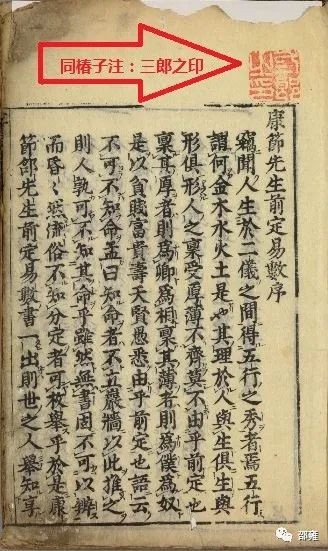 同椿子注：三郎之印
康節先生前定易數序
竊聞人生於二儀之間得五行之秀者焉五行
謂何金木水火土是也其理於人與生俱生與
形俱形人之稟受厚薄不齊莫不由乎前定也
稟其厚者則為卿為相稟其薄者則為僕為奴
是以貧賤富貴壽夭賢愚悉由乎前定也語云
不可不知命孟曰知命者不立巖牆以此推之
則人孰可不知其命乎雖然無書固不可以辨
而昏〻然俳俗不知分定者可枚舉乎於是康
節邵先生前定易數書一出則世之人舉知享
邵雍